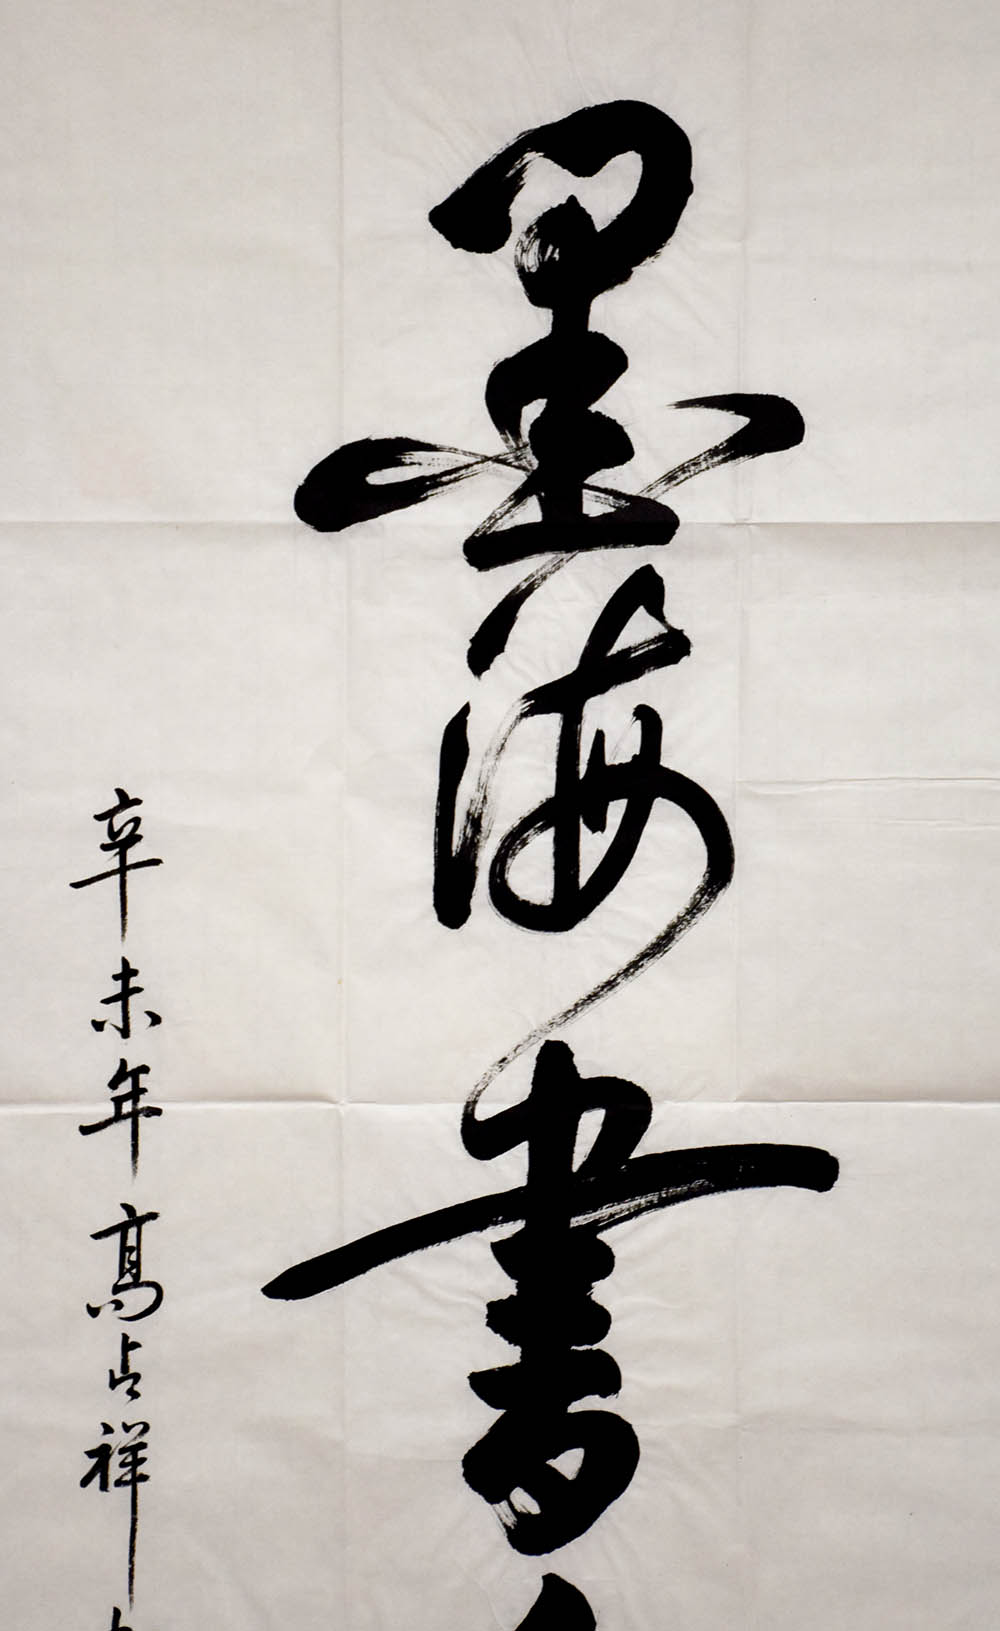 墨海書
辛未年高占祥